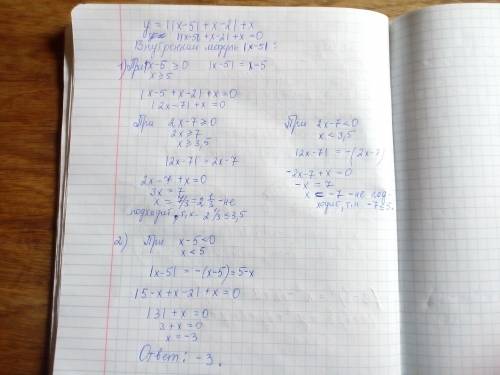 y = ||x-5|+x-2|+x
||x-5|+x-2|+x=0
Внутренний модуль |x-5|:
1) При x-5≥0 |x-5|=x-5
x≥5
|x-5+x-2|+x=0
|2x-7|+x=0
При 2x-7≥0
2x≥7
x≥3,5
|2x-7|=2x-7
2x-7+x=0
3x=7
x=7/3=2 1/3 - не
подходит, т.к. 2 1/3≤3,5
При 2x-7<0
x<3,5
|2x-7|=-(2x-7)
-2x-7+x=0
-x=7
x=-7 - не под-
ходит, т.к. -7≤5.
2) При x-5<0
x<5
|x-5|=-(x-5)=5-x
|5-x+x-2|+x=0
|3|+x=0
3+x=0
x=-3
Ответ: -3.